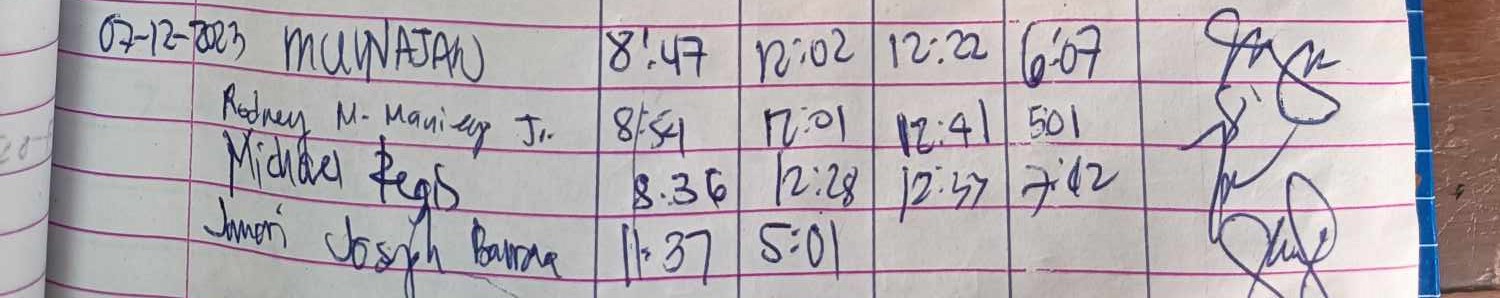 07-12-2023 MUWAJAN 8:47 12:02 12:22 6:07
Rodney M. Jr. 8:54 12:01 12:41 501
Michael Regis 8.36 12:28 12:37 7:12
Joseph 11:37 5:01